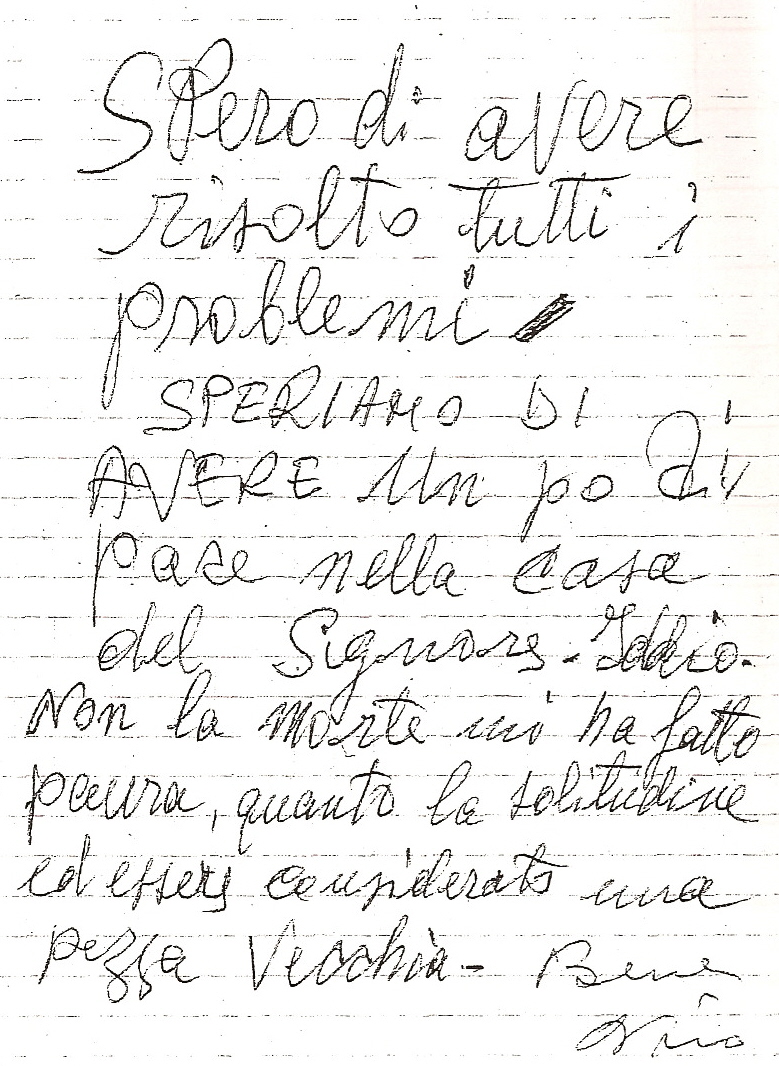 Spero di avere
risolto tutti i
problemi
SPERIAMO DI
AVERE un po di
pace nella casa
del Signore - Iddio.
Non la morte mi ha fatto
paura, quanto la solitudine
ed essere considerato una
pezza Vecchia - Bene
Nino